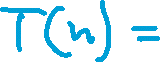 T(n) =